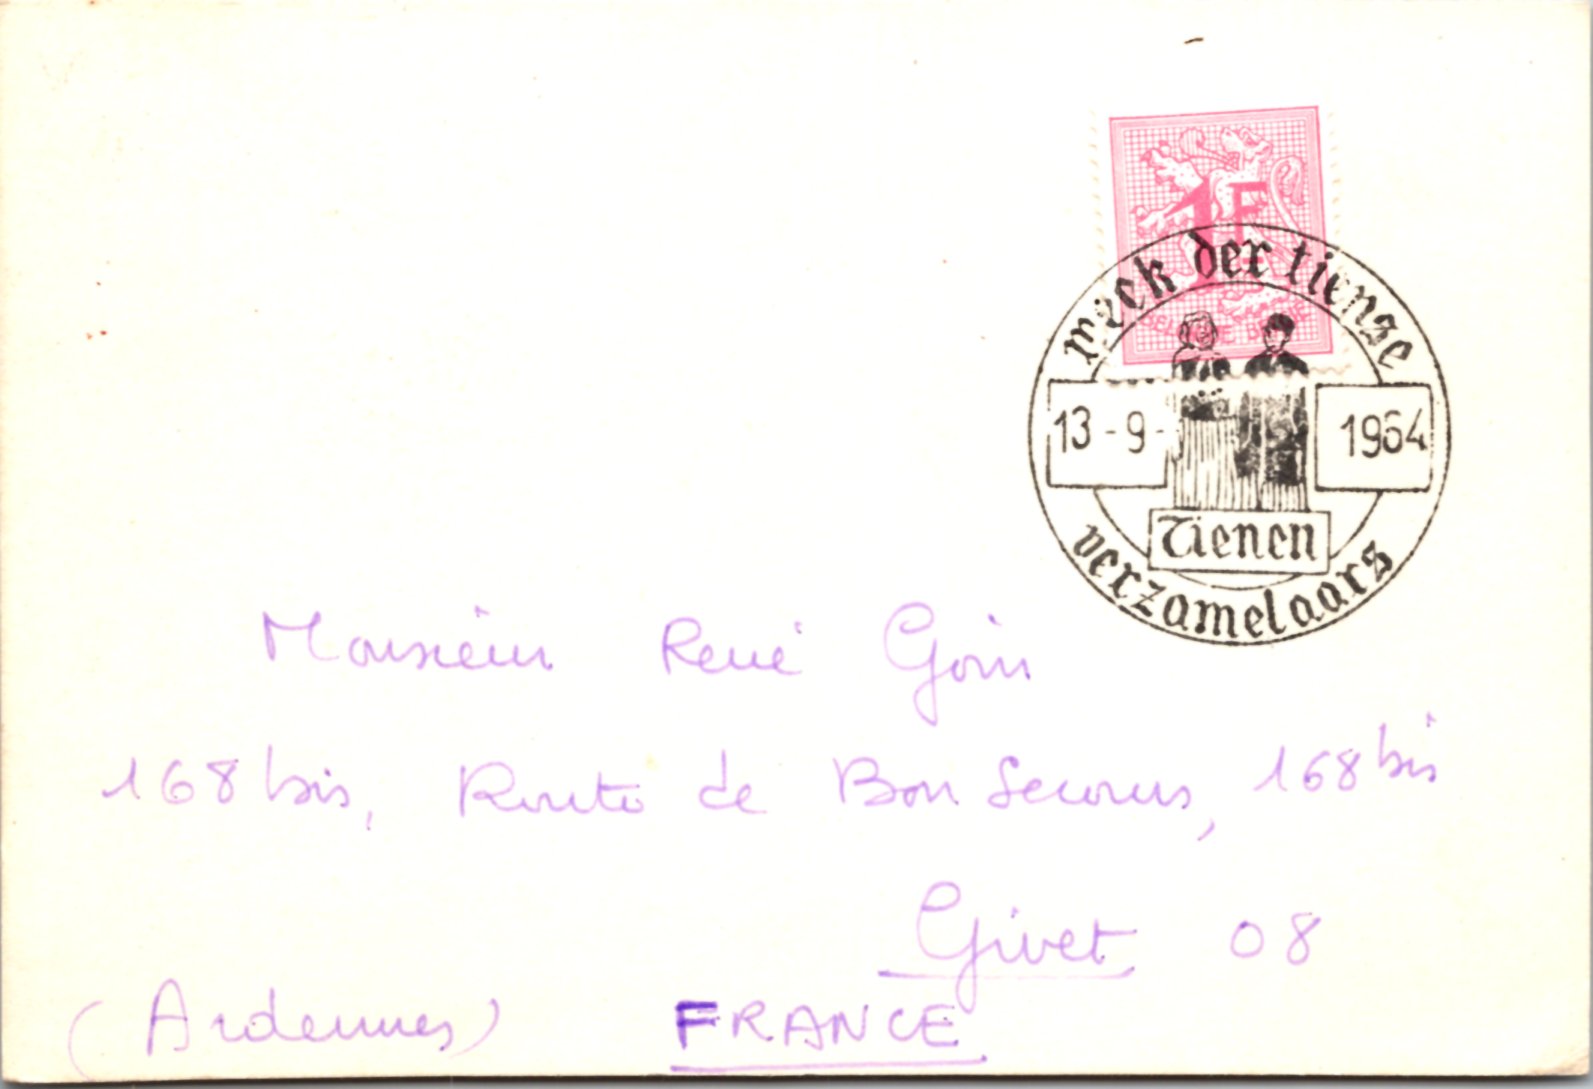 1F
BELGIQUE BELGIE
week der tiense
13-9- 1964
Tienen
verzamelaars
Monsieur René Goin
168 bis, Route de Bon Secours, 168 bis
Givet 08
(Ardennes) FRANCE